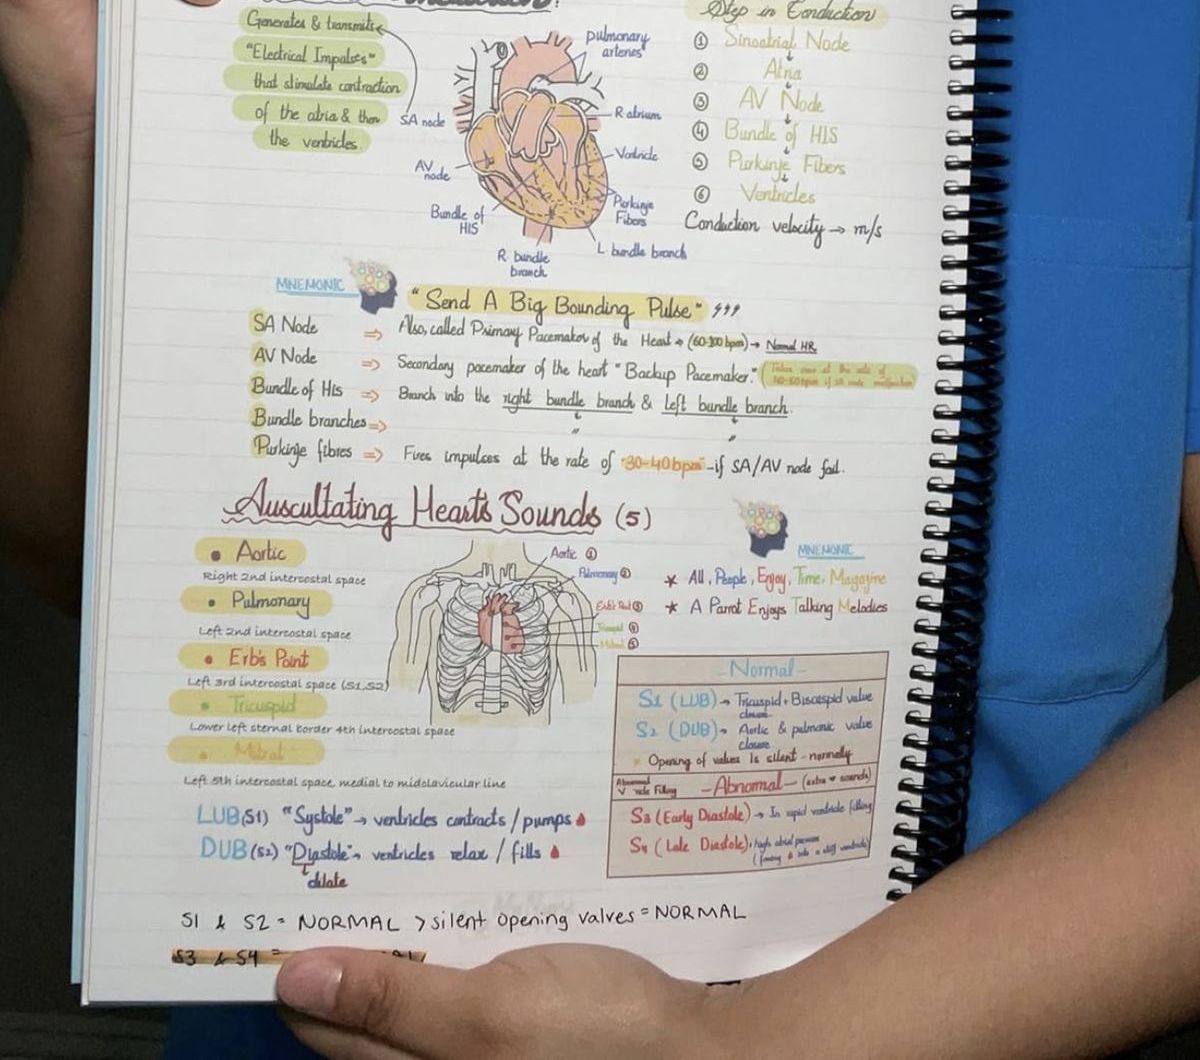 Generates & transmits
"Electrical Impulses"
that stimulate contraction
of the atria & then
the ventricles
pulmonary
arteries
R atrium
SA node
Ventricle
AV
node
Purkinje
Fibers
Bundle of
HIS
L bundle branch
R bundle
branch
Step in Conduction
① Sinoatrial Node
② Atria
③ AV Node
④ Bundle of HIS
⑤ Purkinje Fibers
⑥ Ventricles
Conduction velocity → m/s
MNEMONIC
"Send A Big Bounding Pulse"
SA Node ⇒ Also, called Primary Pacemaker of the Heart → (60-100 bpm) → Normal HR
AV Node ⇒ Secondary pacemaker of the heart "Backup Pacemaker." (Takes over at the rate of
40-60bpm if SA node malfunction
Bundle of His ⇒ Branch into the right bundle branch & left bundle branch.
Bundle branches ⇒ " "
Purkinje fibres ⇒ Fires impulses at the rate of "30-40bpm" - if SA/AV node fail.
Auscultating Heart's Sounds (5)
• Aortic
Right 2nd intercostal space
• Pulmonary
Left 2nd intercostal space
• Erb's Point
Left 3rd intercostal space (S1,S2)
• Tricuspid
Lower left sternal border 4th intercostal space
• Mitral
Left 5th intercostal space, medial to midclavicular line
Aortic ①
Pulmonary ②
Erb's Point ③
Tricuspid ④
Mitral ⑤
MNEMONIC
* All, People, Enjoy, Time, Magazine
* A Parrot Enjoys Talking Melodies
- Normal -
S1 (LUB) → Tricuspid + Bicuspid valve
closure
S2 (DUB) → Aortic & pulmonic valve
closure
Opening of valves is silent - normally
Abnormal
- Abnormal - (extra sounds)
S3 (Early Diastole) → In rapid ventricle filling
S4 (Late Diastole)
LUB (S1) "Systole" → ventricles contracts / pumps
DUB (S2) "Diastole" → ventricles relax / fills
dilate
S1 & S2 = NORMAL > silent opening valves = NORMAL
S3 & S4 =